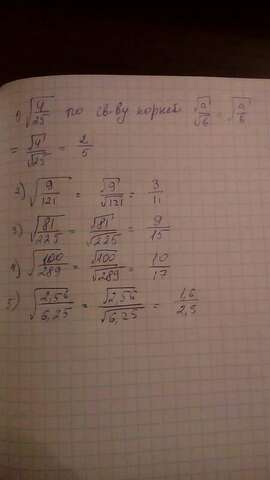 1) √(4/25) по св-ву корней √a/√b = √(a/b)
= √4/√25 = 2/5
2) √(9/121) = √9/√121 = 3/11
3) √(81/225) = √81/√225 = 9/15
4) √(100/289) = √100/√289 = 10/17
5) √(2,56/6,25) = √2,56/√6,25 = 1,6/2,5